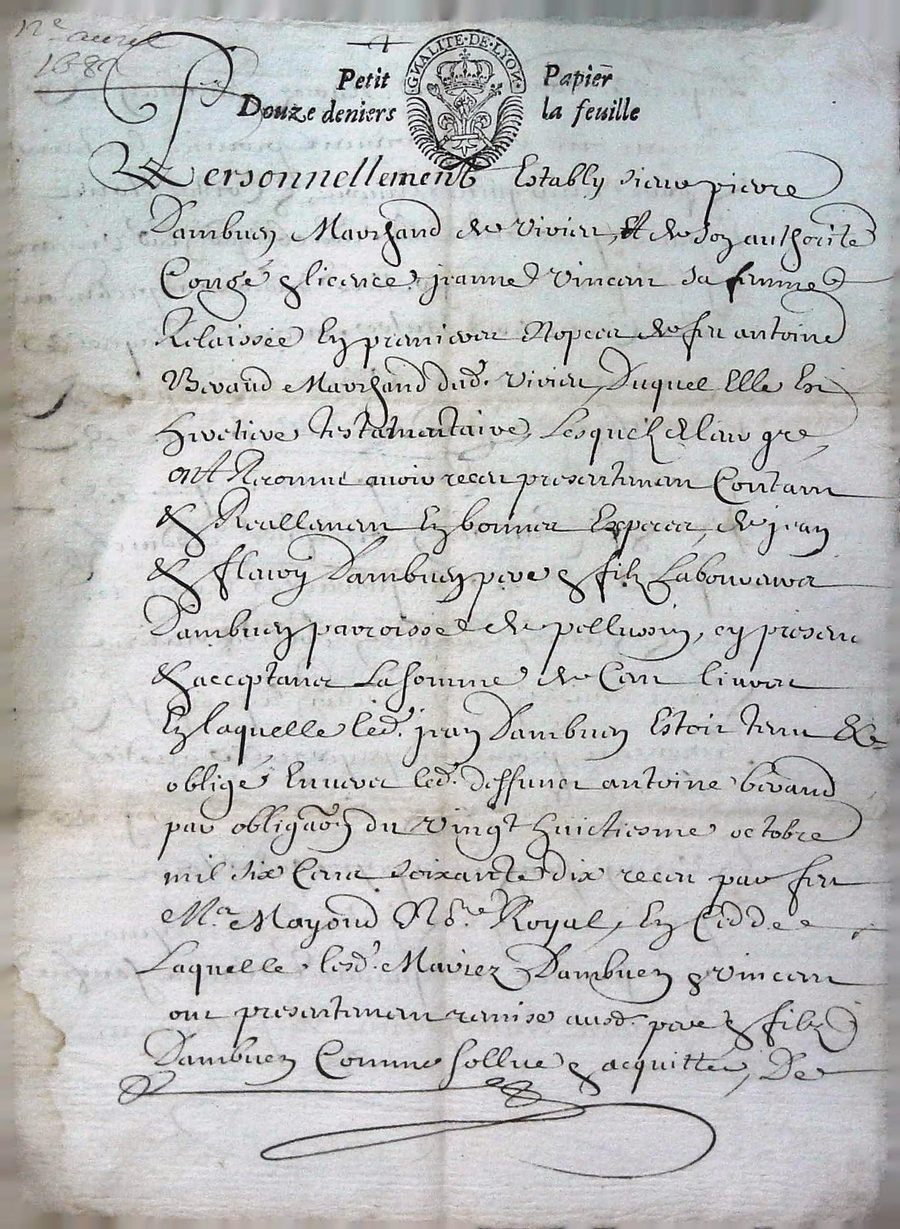 12e avril
168
GNALITE·DE·LYON·
Petit Papier
Douze deniers la feuille
Personnellement Estably sieur pierre
Dambuen Marchand de Vivieu, Et de son authorité
Congé & licence, jeanne Vincent sa femme
Relaissée En premieres Nopces de feu antoine
Beraud Marchand dud. Vivieu, Duquel Elle Est
Heretiere testamentaire, Lesquelz de leur gre
ont Reconnu avoir receu presentement Contant
& Reallement En bonnes Especes, de jean
& fleury Dambuen pere & filz Laboureurs
Dambuen parroisse de pellussin, cy presens
& acceptans La somme de Cent livres
En laquelle led. jean Dambuen Estoit tenu &
obligé Envers led. deffunct antoine beraud
par obligaõn du vingt huictiesme octobre
mil six Cens soixante dix receu par feu
Me Mayoud Nore Royal, Ex Cedde
Laquelle lesd. Mariez Dambuen & Vincent
ont presentement remise ausd. pere & filz
Dambuen Comme sollue & acquittée, De